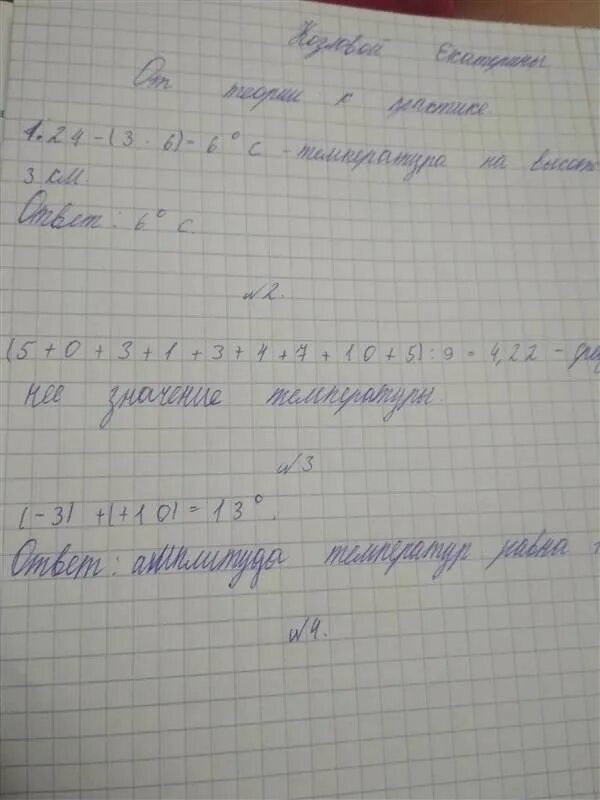 Козловой Екатерины
От теории к практике.
1. 24 - (3 · 6) = 6° С - температура на высоте
3 км.
Ответ: 6° с.
№2.
(5 + 0 + 3 + 1 + 3 + 4 + 7 + 10 + 5) : 9 = 4,22 - сред
нее значение температуры.
№3
(-3) + (+10) = 13°.
Ответ: амплитуда температур равна
№4.